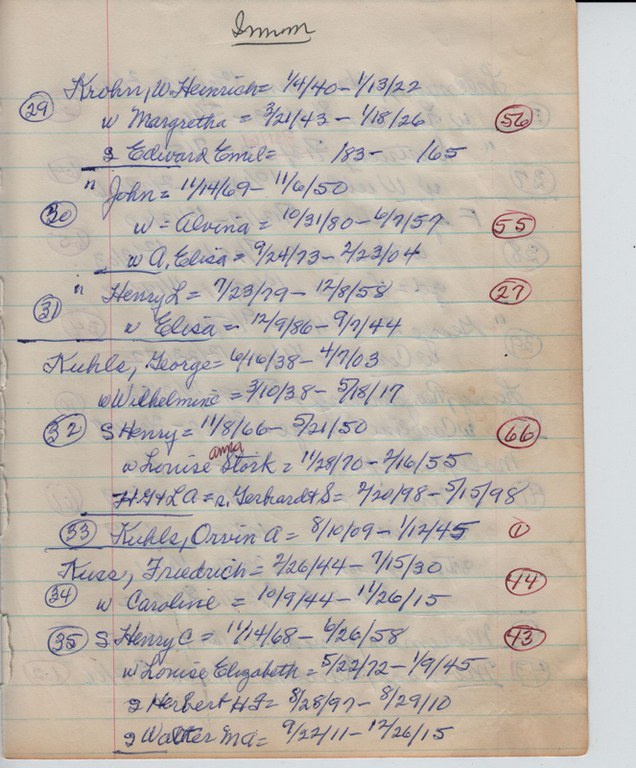 Krohn, W. Heinrich = 1/4/40 - 1/13/22
29
w Margretha = 3/21/43 - 1/18/26 56
Edward Emil = /83 - /65
" John = 11/14/69 - 11/6/50
30 w = Alvina = 10/31/80 - 6/7/57 55
w A, Elisa = 9/24/73 - 2/23/04
" Henry L = 7/23/79 - 12/8/58 27
31 w Elisa = 12/9/86 - 9/7/44
Kuhls, George = 6/16/38 - 4/7/03
w Wilhelmine = 3/10/38 - 5/18/17
32 S Henry = 11/8/66 - 5/21/50 66
anna
w Louise Stork = 11/28/70 - 2/16/55
H.G & L A = s, Gerhardt S = 2/20/98 - 5/15/98
33 Kuhls, Orvin A = 8/10/09 - 1/12/45 1
Kuss, Friedrich = 2/26/44 - 7/15/30
34 w Caroline = 10/9/44 - 11/26/15 44
35 S Henry C = 11/14/68 - 6/26/58 43
w Louise Elizabeth = 5/22/72 - 1/9/45
Herbert H F = 8/28/97 - 8/29/10
Walter MA = 9/22/11 - 12/26/15